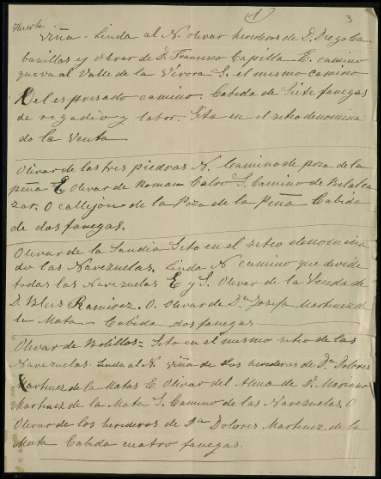 (1) 3
Huerta
Viña. Linda al N. olivar herederos de D. Diego Ca
banillas y olivar de D. Francisco Capilla E. camino
que va al Valle de la Vívora S. el mismo camino
O el espresado camino. Cabida de siete fanegas
de regadío y labor. Sita en el sitio denomina
do la Venta
Olivar de las tres piedras N. Camino de poza de la
peña E Olivar de Roman Calvo S. Camino de Belalca
zar. O callejon de la Poza de la Peña Cabida
de dos fanegas.
Olivar de la Sandia Sito en el sitio denomina
do las Navezuelas. Linda N camino que divide
todas las Navezuelas E y S. Olivar de la Viuda de
D. Blas Ramirez. O. Olivar de Dª Josefa Martinez de
la Mata = Cabida dos fanegas
Olivar de Bolillos = Sito en el mismo sitio de las
Navezuelas. Linda al N. viña de los herederos de Dª Dolores
Martinez de la Mata E. Olivar del Alma de D. Mariano
Martinez de la Mata S. Camino de las Navezuelas. O
Olivar de los herederos de Dª Dolores Martinez de la
Mata Cabida cuatro fanegas.